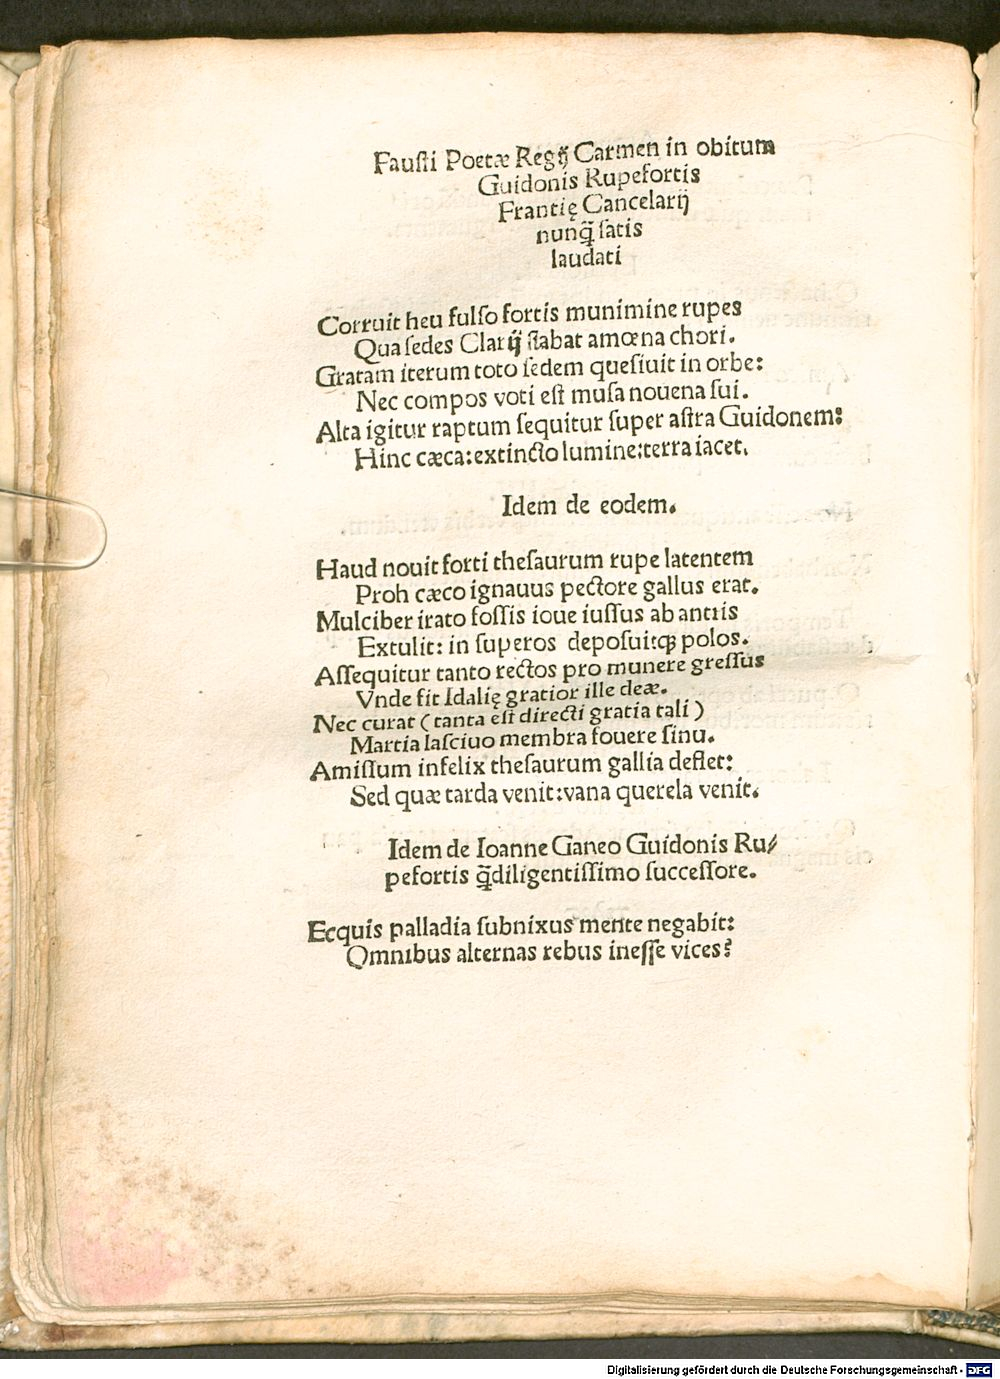 Fauſti Poetæ Regij Carmen in obitum
Guidonis Rupefortis
Frantię Cancelarij
nunq̃ ſatis
laudati
Corruit heu fulſo fortis munimine rupes
Qua ſedes Clarij ſtabat amœna chori.
Gratam iterum toto ſedem queſiuit in orbe:
Nec compos voti eſt muſa nouena ſui.
Alta igitur raptum ſequitur ſuper aſtra Guidonem:
Hinc cæca: extincto lumine: terra iacet.
Idem de eodem.
Haud nouit forti theſaurum rupe latentem
Proh cæco ignauus pectore gallus erat.
Mulciber irato foſſis ioue iuſſus ab antris
Extulit: in ſuperos depoſuitqꝫ polos.
Aſſequitur tanto rectos pro munere greſſus
Vnde fit Idalię gratior ille deæ.
Nec curat (tanta eſt directi gratia tali)
Martia laſciuo membra fouere ſinu.
Amiſſum infelix theſaurum gallia deflet:
Sed quæ tarda venit: vana querela venit.
Idem de Ioanne Ganeo Guidonis Ru⸗
pefortis q̃diligentiſſimo ſucceſſore.
Ecquis palladia ſubnixus mente negabit:
Omnibus alternas rebus ineſſe vices?
Digitalisierung gefördert durch die Deutsche Forschungsgemeinschaft - DFG